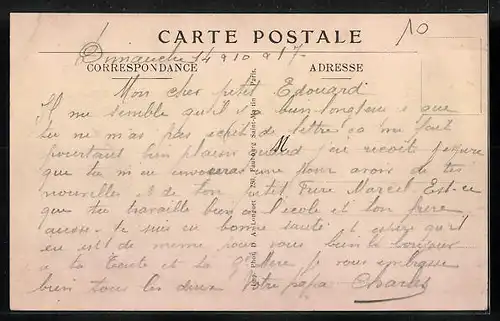 CARTE POSTALE
10
Dimanche 14 9 10 917
CORRESPONDANCE
ADRESSE
Mon cher petit Edouard
Il me semble qu'il y a bien longtemps que
tu ne m'as pas de lettre ça me fait
pourtant bien plaisir quand j'en reçoit j'espère
que tu m'en une pour avoir de tes
nouvelles et de ton petit Frère Marcel Est-ce
que tu travaille bien a l'école et ton frère
aussi. Je suis en bonne santé et espère qu'il
en est de meme pour vous bien le bonjour
a ta Tante et ta Gd Mère je vous embrasse
bien tous les deux Votre papa Charles
Imp. Phot. D. A. Longuet 250, Faubourg Saint-Martin Paris.